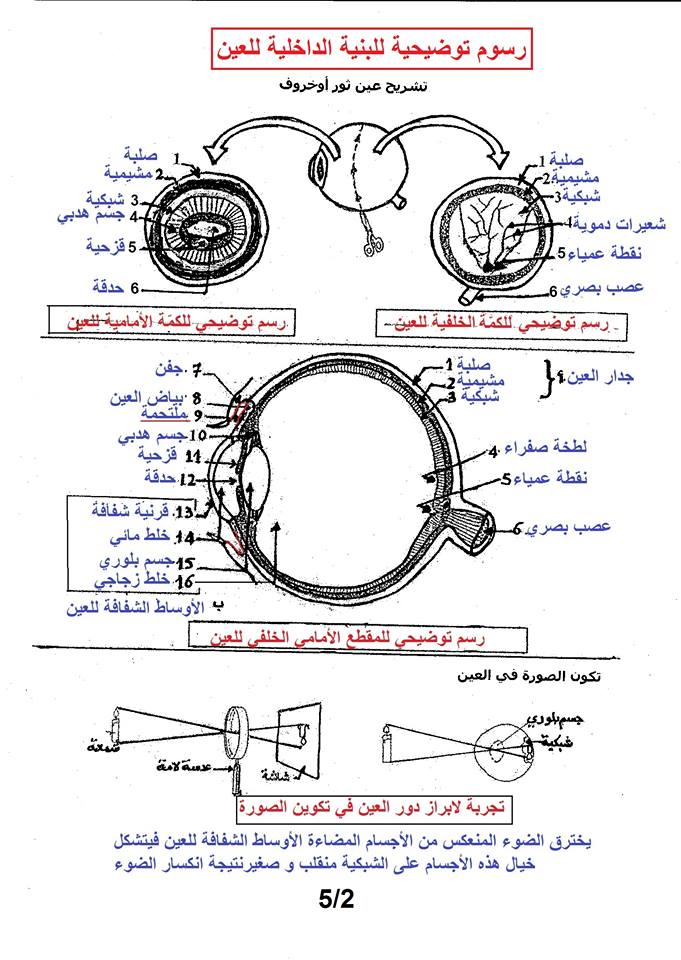 رسوم توضيحية للبنية الداخلية للعين
تشريح عين ثور أوخروف
صلبة 1
مشيمية 2
شبكية 3
جسم هدبي 4
قزحية 5
6 حدقة
صلبة 1
مشيمية 2
شبكية 3
شعيرات دموية 4
نقطة عمياء 5
عصب بصري 6
رسم توضيحي للكمّة الخلفية للعين
رسم توضيحي للكمّة الأمامية للعين
جدار العين
صلبة 1
مشيمية 2
شبكية 3
لطخة صفراء 4
نقطة عمياء 5
عصب بصري 6
7. جفن
8. بياض العين
9. ملتحمة
10. جسم هدبي
11. قزحية
12. حدقة
13. قرنية شفافة
14. خلط مائي
15. جسم بلوري
16. خلط زجاجي
ب الأوساط الشفافة للعين
رسم توضيحي للمقطع الأمامي الخلفي للعين
تكون الصورة في العين
جسم بلوري
شبكية
شمعة
عدسة لامة
شاشة
تجربة لابراز دور العين في تكوين الصورة
يخترق الضوء المنعكس من الأجسام المضاءة الأوساط الشفافة للعين فيتشكل
خيال هذه الأجسام على الشبكية منقلب و صغيرنتيجة انكسار الضوء
5/2